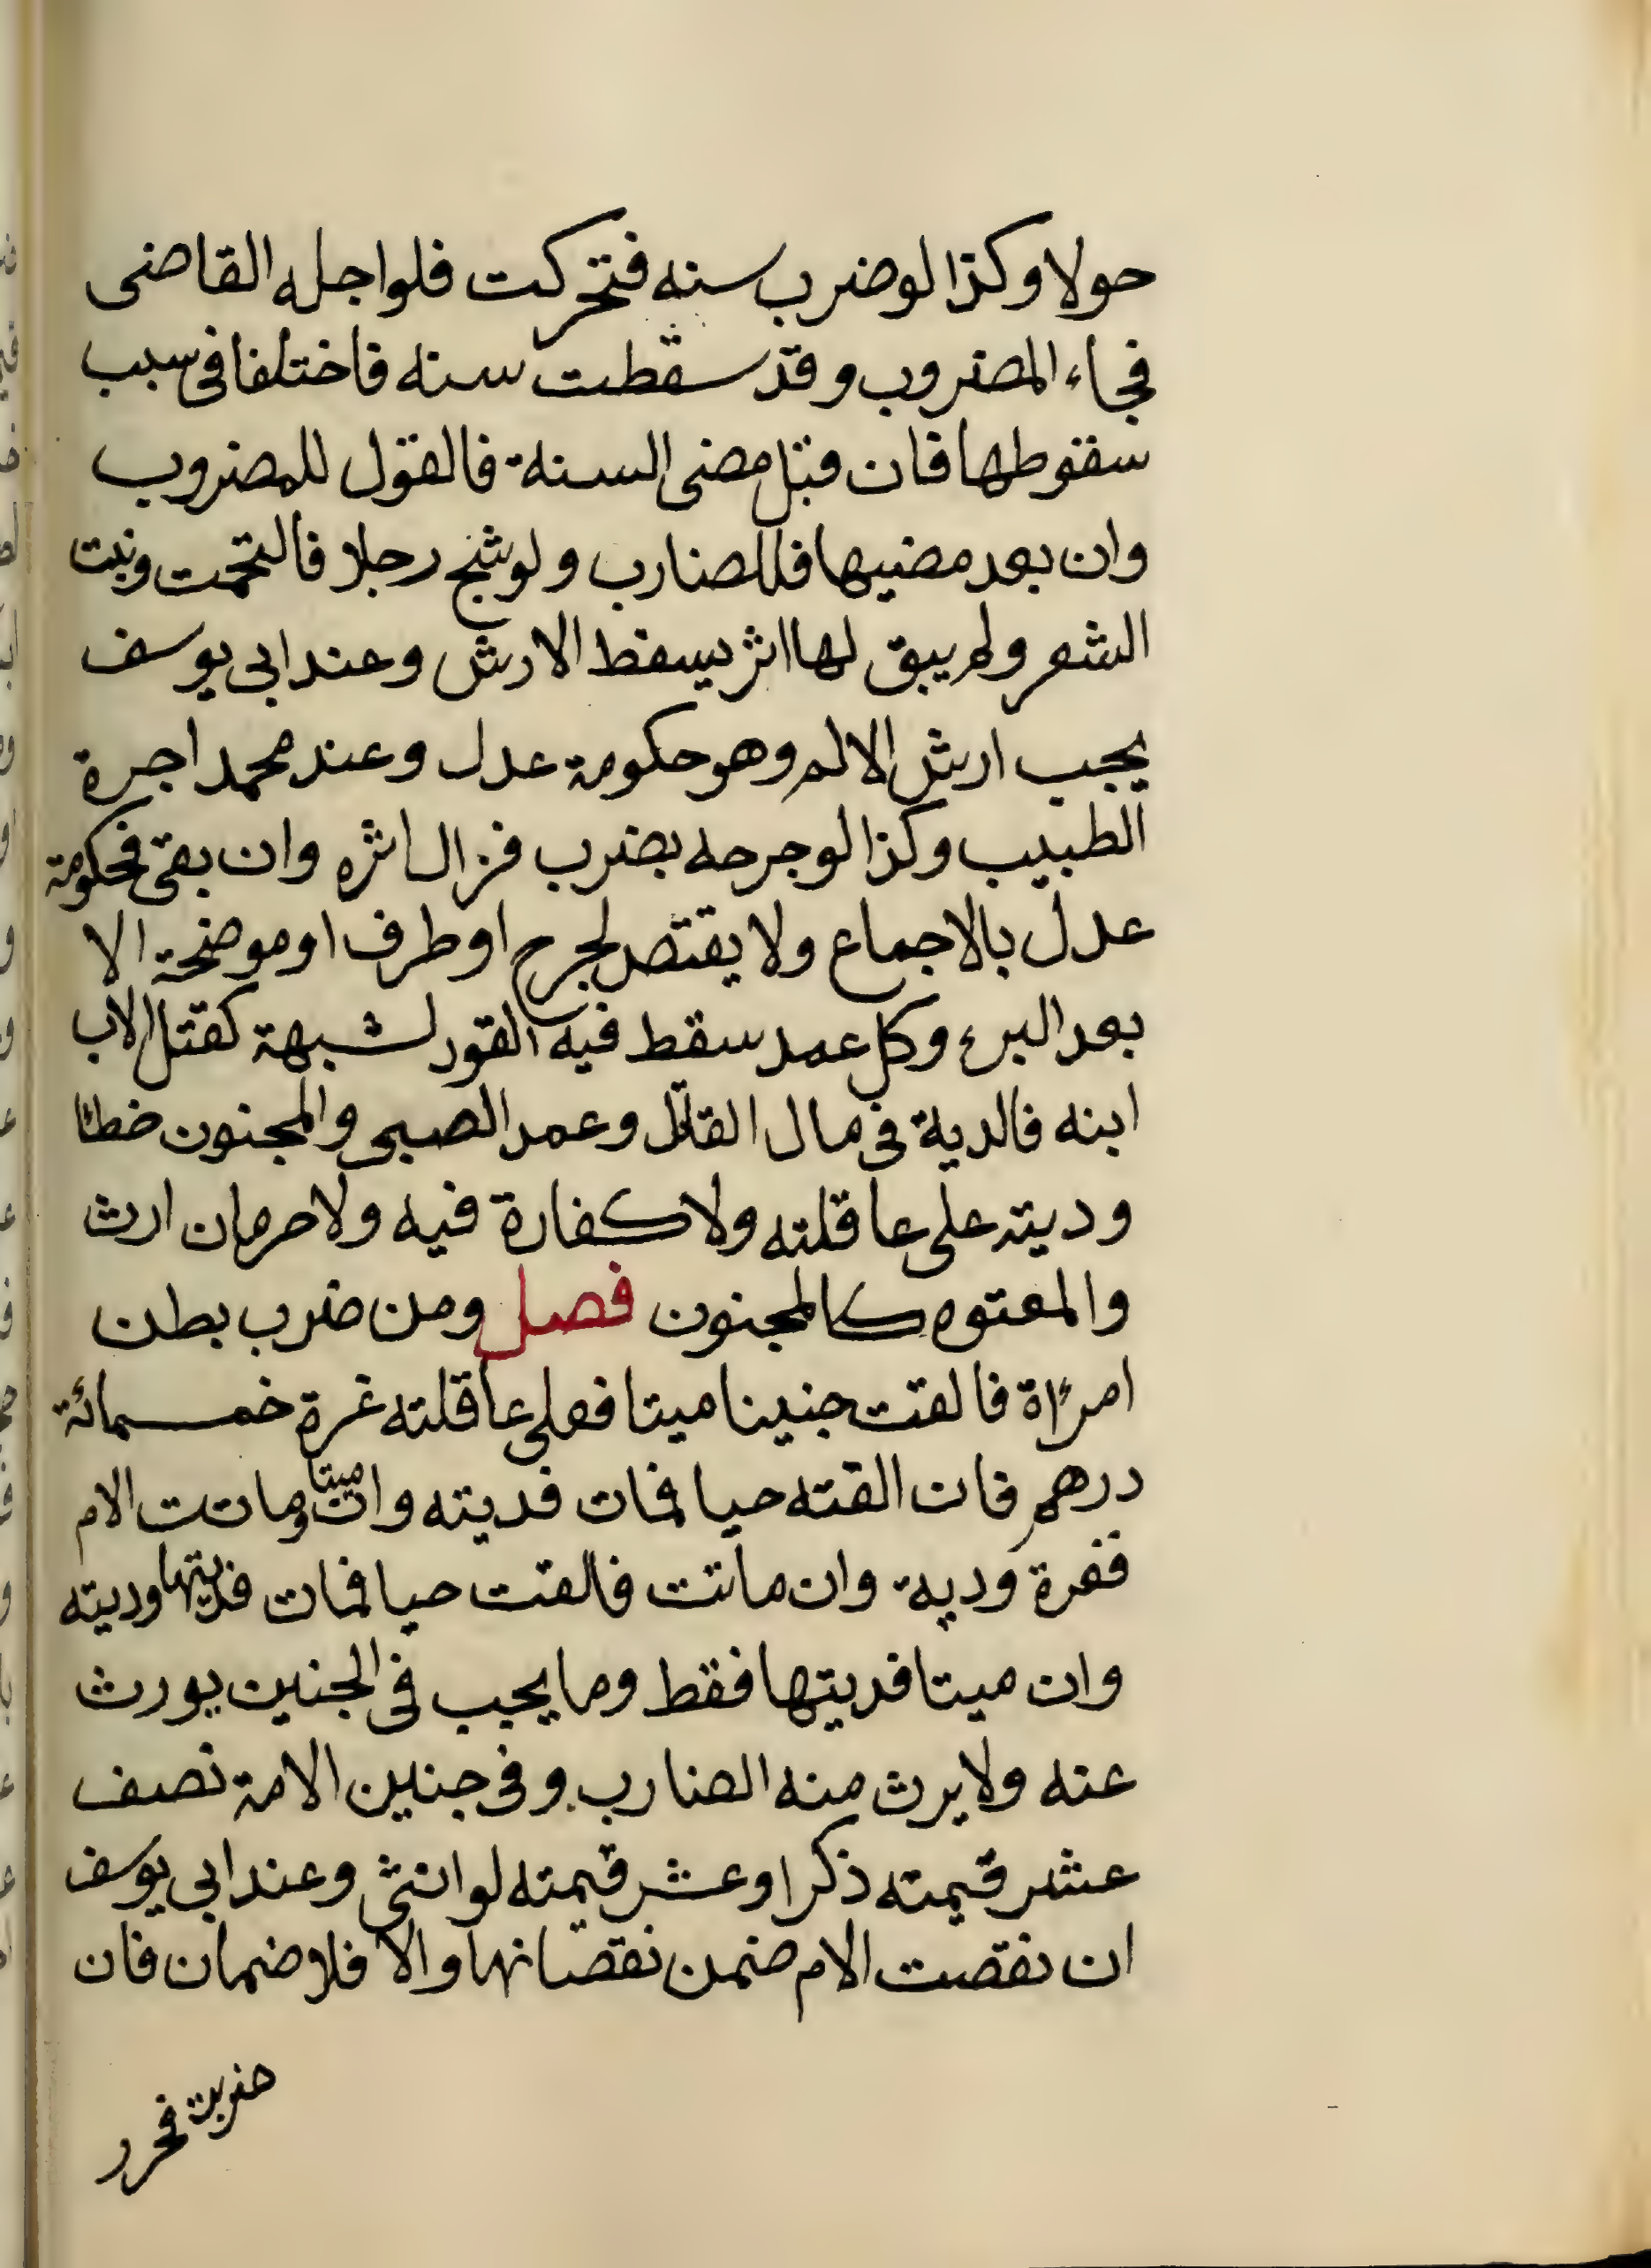 حولا وكذا لو ضرب سنه فتحركت فلو اجله القاضى
فجاء المضروب وقد سقطت سنه فاختلفا فى سبب
سقوطها فان قبل مضى السنة فالقول للمضروب
وان بعد مضيها فللضارب ولو شج رجلا فالتحمت ونبت
الشعر ولم يبق لها اثر يسقط الارش وعند ابى يوسف
يجب ارش الالم وهو حكومة عدل وعند محمد اجرة
الطبيب وكذا لو جرحه بضرب فزال اثره وان بقى فحكومة
عدل بالاجماع ولا يقتص لجرح او طرف او موضحة الا
بعد البرء وكل عمد سقط فيه القود لشبهة كقتل الاب
ابنه فالدية فى مال القاتل وعمد الصبى والمجنون خطائا
وديته على عاقلته ولا كفارة فيه ولا حرمان ارث
والمعتوه كالمجنون فصل ومن ضرب بطن
امرأة فالقت جنينا ميتا فعلى عاقلته غرة خمسمائة
درهم فان القته حيا فمات فديته وان ميتا وماتت الام
فغرة ودية وان ماتت فالقت حيا فمات فديتها وديته
وان ميتا فديتها فقط وما يجب فى الجنين يورث
عنه ولا يرث منه الضارب وفى جنين الامة نصف
عشر قيمته ذكرا وعشر قيمته لو انثى وعند ابى يوسف
ان نقصت الام ضمن نقصانها والا فلا ضمان فان
ضربت فحرر